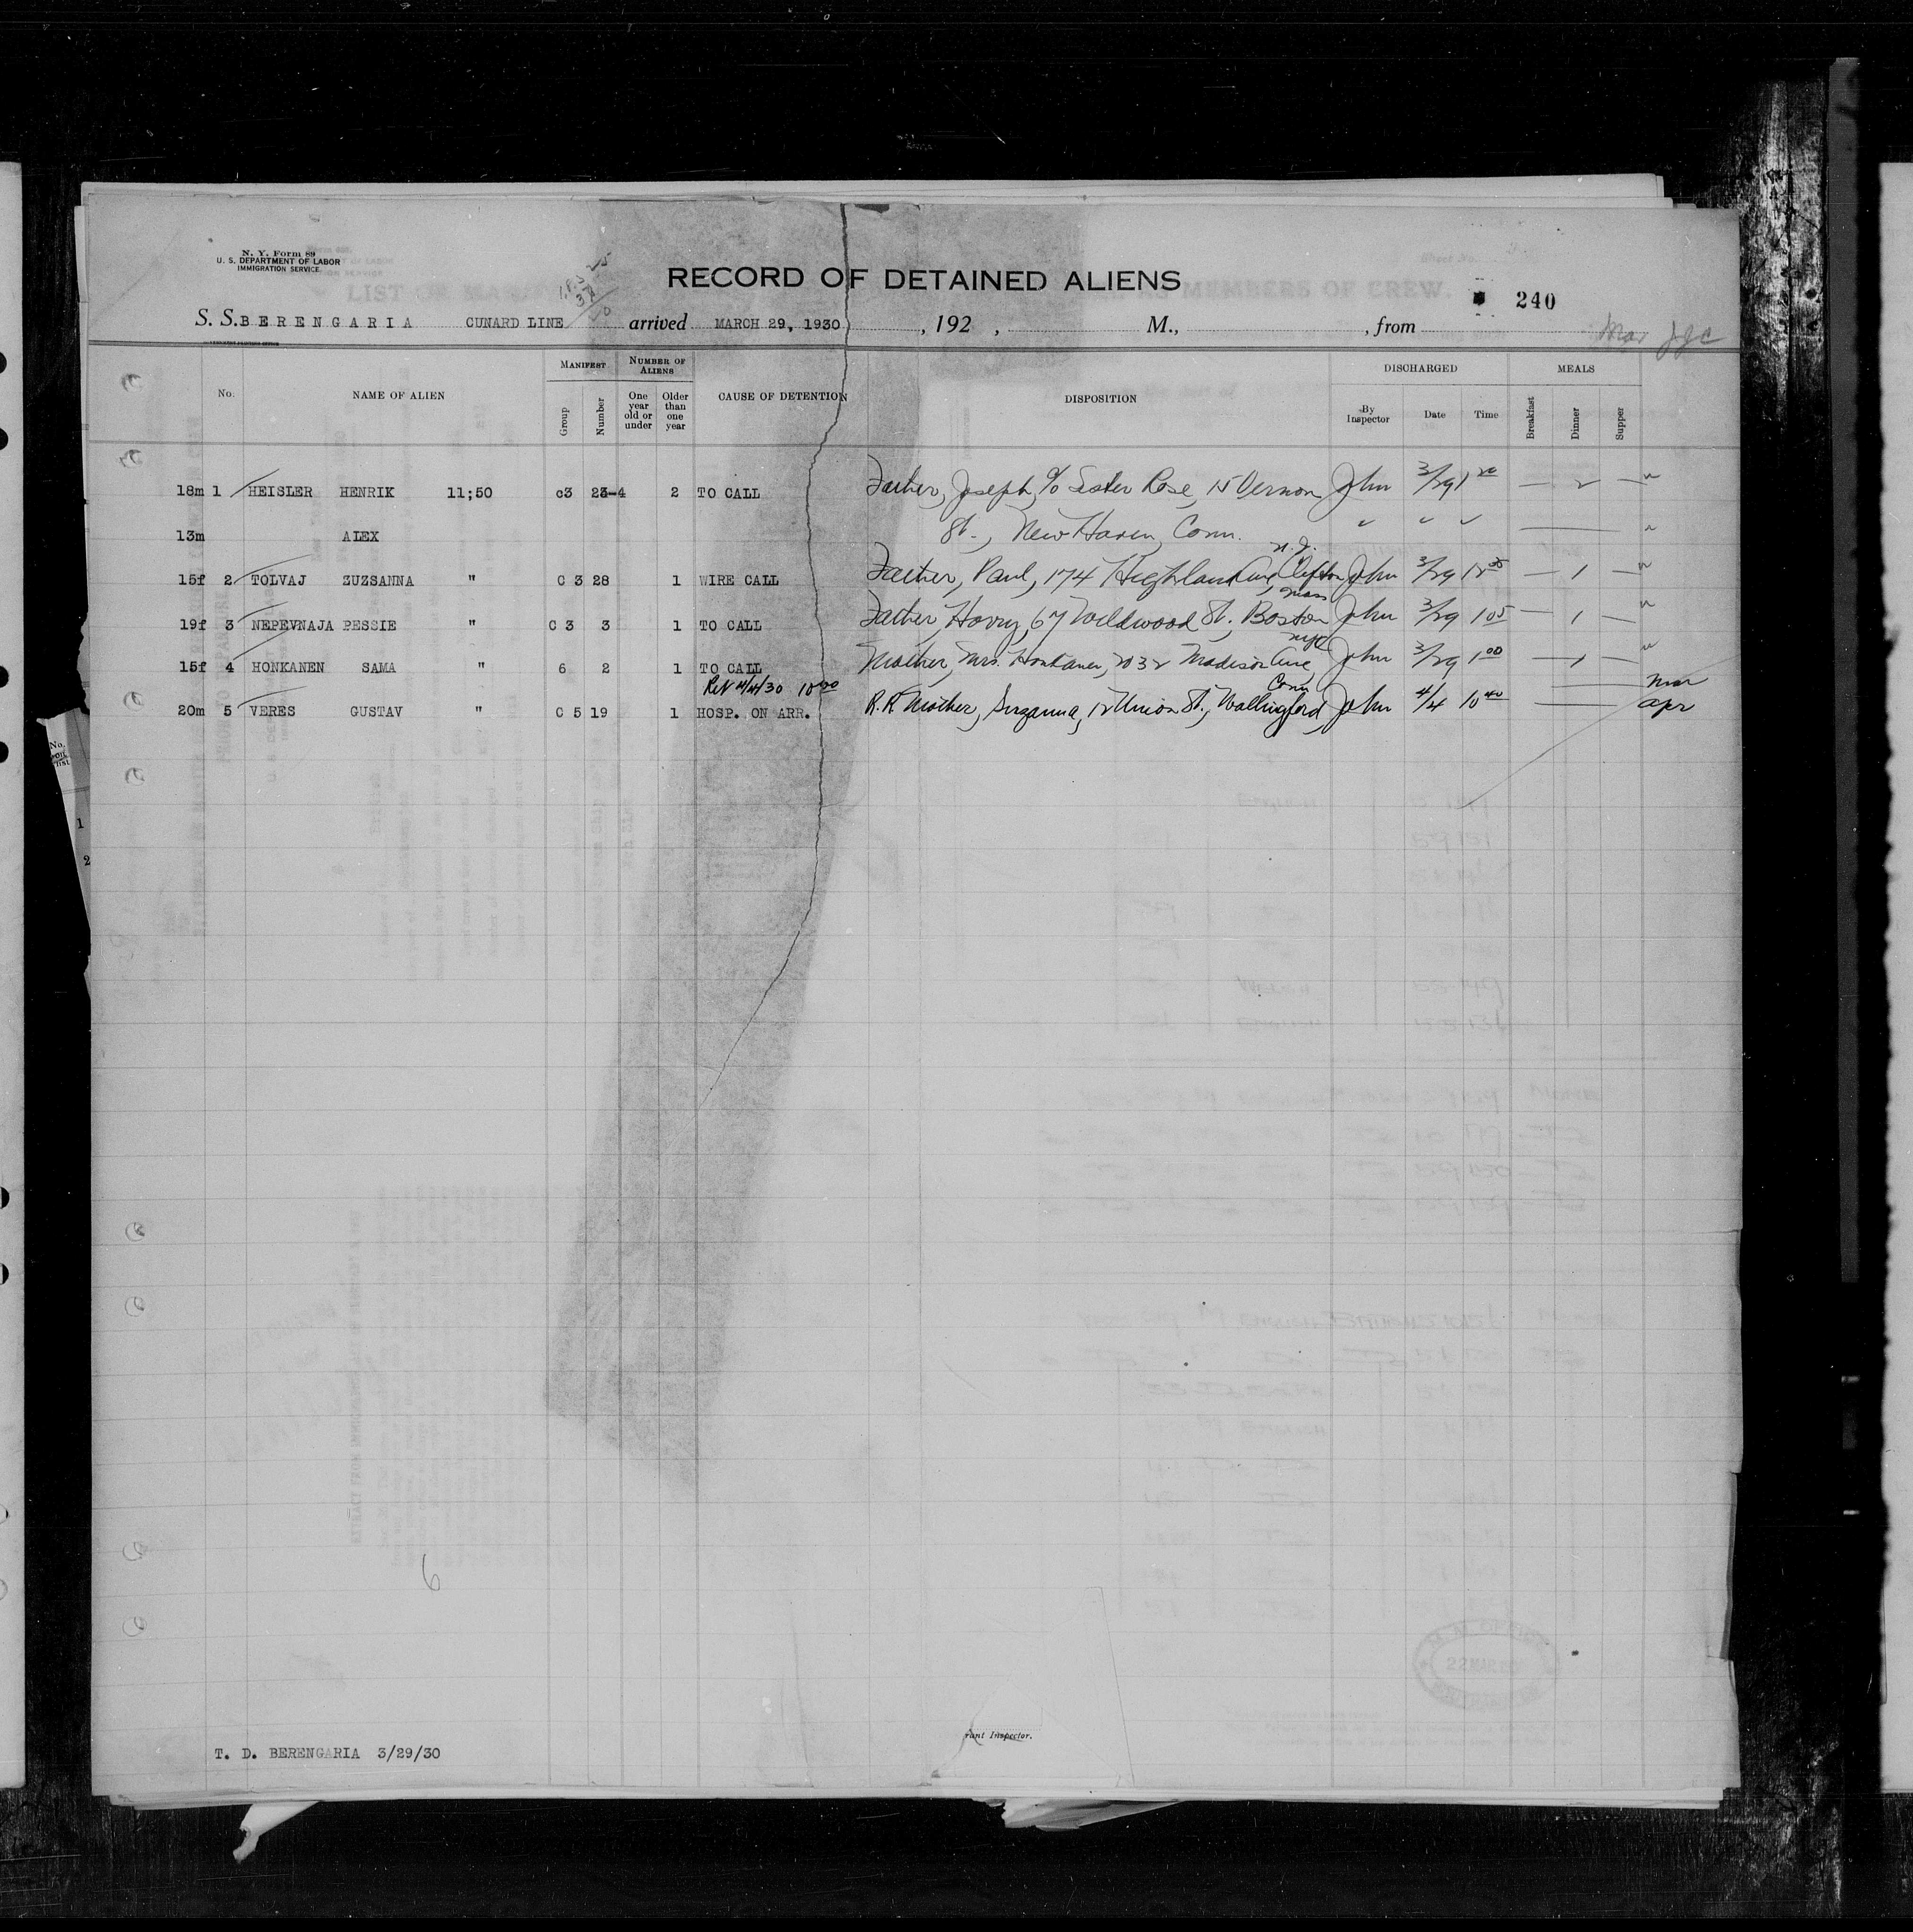 N. Y. Form 89
U. S. DEPARTMENT OF LABOR
IMMIGRATION SERVICE
RECORD OF DETAINED ALIENS
240
S. S. BERENGARIA CUNARD LINE arrived MARCH 29, 1930 , 192 , M., , from
No. NAME OF ALIEN MANIFEST NUMBER OF ALIENS CAUSE OF DETENTION DISPOSITION DISCHARGED MEALS
Group Number One year old or under Older than one year By Inspector Date Time Breakfast Dinner Supper
18m 1 HEISLER HENRIK 11;50 c3 23-4 2 TO CALL Father, Joseph, c/o Sister Rose, 15 Vernon John 3/29 1 20 — 2 —
13m ALEX St., New Haven, Conn. " " "
N.J.
15f 2 TOLVAJ ZUZSANNA " C 3 28 1 WIRE CALL Father, Paul, 174 Highland Ave, Clifton John 3/29 12 35 — 1 —
Mass
19f 3 NEPEVNAJA PESSIE " C 3 3 1 TO CALL Father, Harry, 67 Wildwood St., Boston John 3/29 1 05 — 1 —
NYC
15f 4 HONKANEN SAMA " 6 2 1 TO CALL Mother, Mrs. Honkanen, 2032 Madison Ave John 3/29 1 00 — 1 —
Rec 4/4/30 10 20 Conn Mar
20m 5 VERES GUSTAV " C 5 19 1 HOSP. ON ARR. R.R. Mother, Suzanna, 12 Union St., Wallingford, John 4/4 10 40 — Apr
6
T. D. BERENGARIA 3/29/30
Inspector.